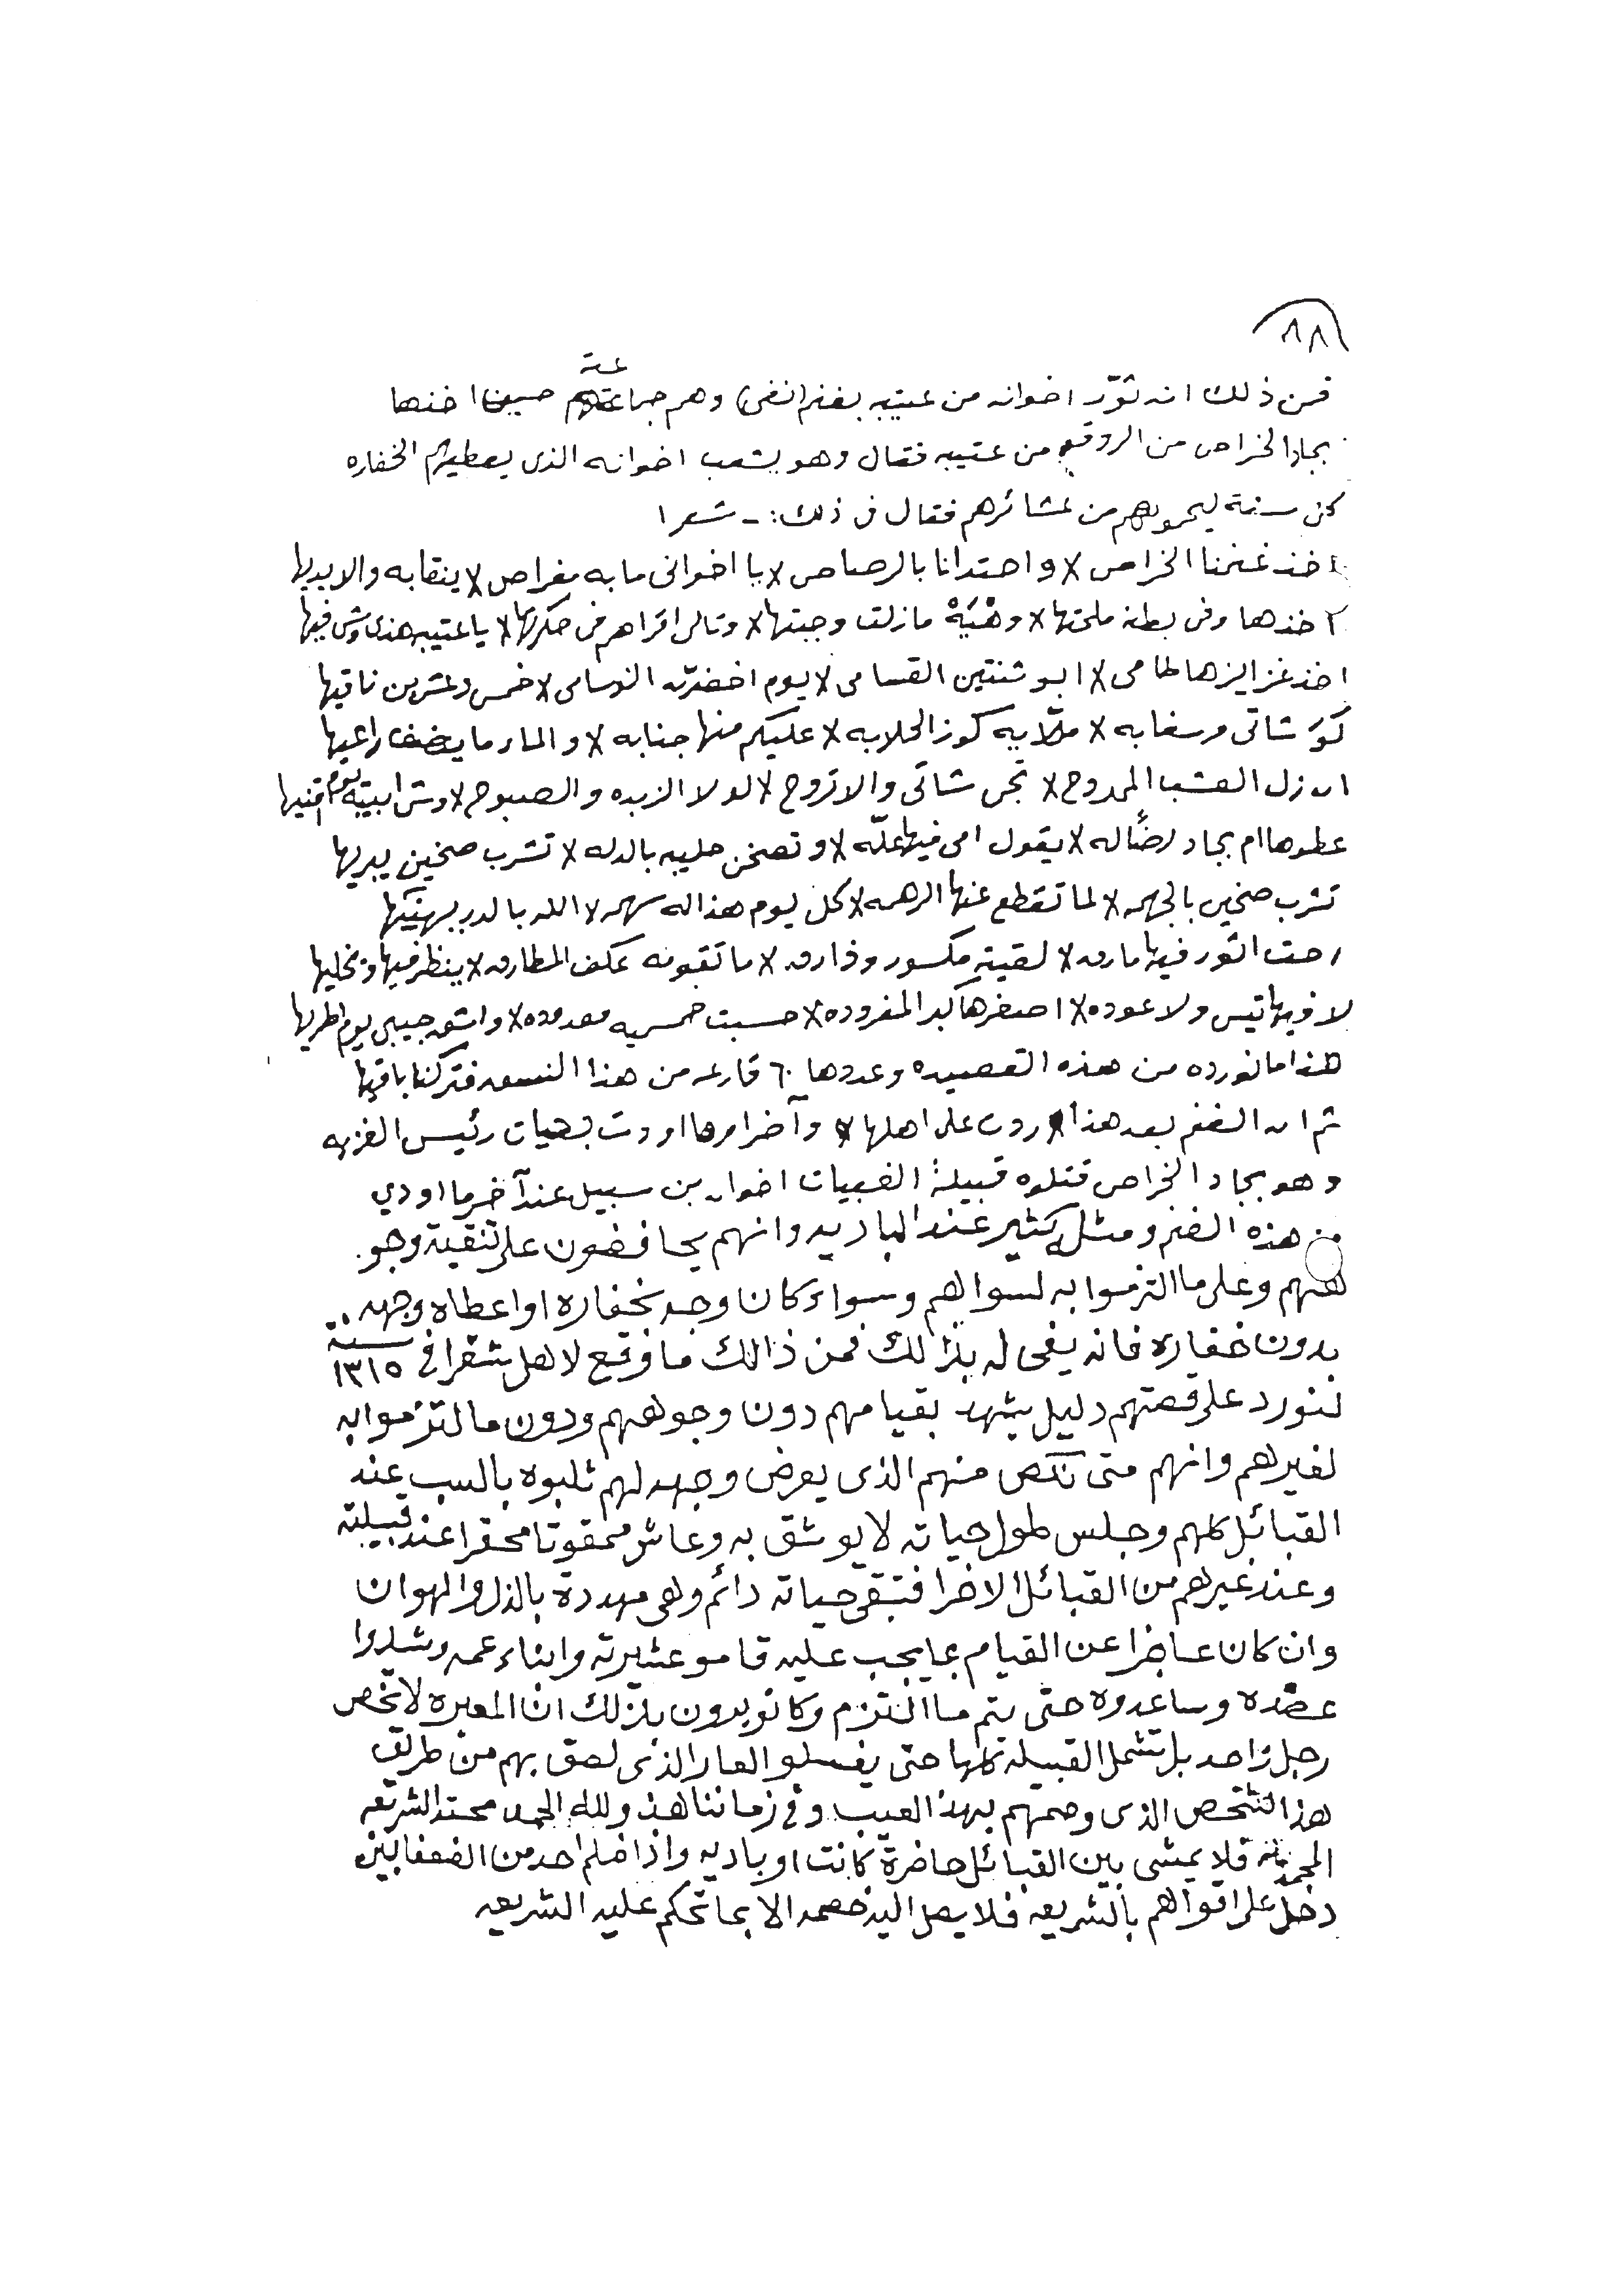 ٨٨
فمن ذلك انه ثوّر اخوانه من عتيبه بغنم انغى) وهم جماعته حينما اخذها
بجاد الخراص من الروقه من عتيبه فقال وهو يشعب اخوانه الذى يعطيهم الخفاره
كل سنة ليحمونهم من عشائرهم فقال فى ذلك :ـ شعرا
اخذ غنمنا الخراص لا واحتدانا بالرصاص لا يا اخوانى ما به مغراص لا ينقا به والا يديها
اخذها وفى بطنه ملحتها لا وهْنَيّهْ مازلت وجبتها لا وتالى اقراهم فى حكرتها لا يا عتيبه هذى وش فيها
اخذ غزايزها طامى لا ابو شنتين القسامى لا يوم اخضرّت النوسامى لا خمس وعشرين ناقيها
كوّ شاتى مرسغابه لا ملّايه كوز الحلابه لا عليكم منها جنابه لا و الماء ما يضف راعيها
ان زل العشب الممدوح لا تجى شاتى والا تروح لا لولا الزبده والصبوح لا وش ابيبه يوم اقنيها
عطوها ام بجاد رضًا له لا يقول امى فيها علّه لا و تصخن حليبه بالدله لا تشرب صخين يبريها
تشرب صخين بالجهمه لا لما تقطع عنها الرهمه لا كل يوم هذا له سهمه لا الله بالدر يهنّيها
رحت اثور فيها مارق لا لقيته مكسور وذارق لا ما تقومه عكف المطارق لا ينظر فيها ويخليها
لا فيها تيس ولا عوده لا اصغرها كبر المفروده لا حسبت خمسيه معدوده لا وانشق جيبى يوم اطريها
هذا ما نورده من هذه القصيده وعددها ٦٠ قارعه من هذا النسق فتركنا باقيها
ثم ان الغنم بعد هذا ردت على اهلها وآخر امرها اودت بحيات رئيس الغزيه
وهو بجاد الخراص قتلوه قبيلة الغبيات اخوان بن سبيل عند آخر ما اودي
من هذه الغنم ومثله كثير عند الباديه وانهم يحافضون على تنقية وجو.
ههم وعلى ما التزموا به لسواهم وسواء كان وجه بخفاره او اعطاه وجهه..
بدون خفاره فانه يفى له بذالك فمن ذالك ما وقع لاهل شقرا فى سنة ١٣١٥
لنورد على قصتهم دليل يشهد بقيامهم دون وجوههم ودون ما لتزموا به
لغيرهم وانهم متى نكص منهم الذى يعرض وجهه لهم ثلبوه بالسب عند
القبائل كلهم وجلس طول حياته لا يوشق به وعاش ممقوتا محقرا عند قبيلته
وعند غيرهم من القبائل الاخرا فتبقى حياته دائم وهى مهددة بالذل والهوان
وان كان عاجزا عن القيام بما يجب عليه قامو عشيرته وابناء عمه وشدوا
عضده وساعدوه حتى يتم ما التزم وكانو يرون بذلك ان المعيره لا تخص
رجل واحد بل تشمل القبيله كلها حتى يغسلو العار الذى لصق بهم من طريق
هذا الشخص الذى وصمتهم بهذ العيب و فى زماننا هذ ولله الحمد محتد الشريعه
المحمديه فلا يمشى بين القبائل حاضرة كانت او باديه واذا ضلم احد من الضعفا بين
دخل على اقواهم بالشريعه فلا يصل اليه خصمه الا بما تحكم عليه الشريعه